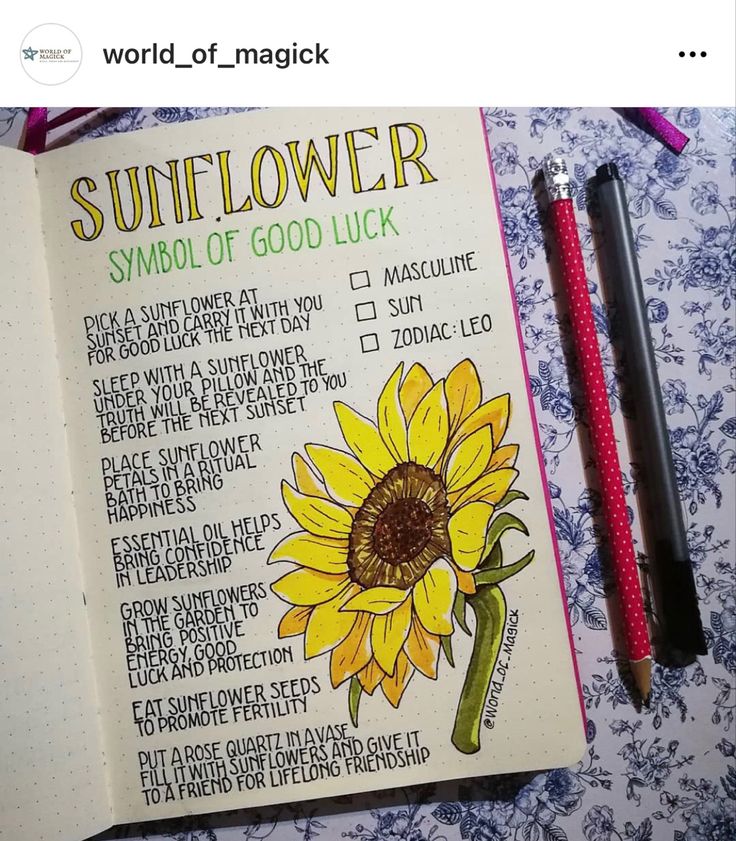 WORLD OF
MAGICK
world_of_magick
SUNFLOWER
SYMBOL OF GOOD LUCK
MASCULINE
SUN
ZODIAC: LEO
PICK A SUNFLOWER AT
SUNSET AND CARRY IT WITH YOU
FOR GOOD LUCK THE NEXT DAY
SLEEP WITH A SUNFLOWER
UNDER YOUR PILLOW AND THE
TRUTH WILL BE REVEALED TO YOU
BEFORE THE NEXT SUNSET
PLACE SUNFLOWER
PETALS IN A RITUAL
BATH TO BRING
HAPPINESS
ESSENTIAL OIL HELPS
BRING CONFIDENCE
IN LEADERSHIP
GROW SUNFLOWERS
IN THE GARDEN TO
BRING POSITIVE
ENERGY, GOOD
LUCK AND PROTECTION
EAT SUNFLOWER SEEDS
TO PROMOTE FERTILITY
PUT A ROSE QUARTZ IN A VASE
FILL IT WITH SUNFLOWERS AND GIVE IT
TO A FRIEND FOR LIFELONG FRIENDSHIP
@World_of_Magick